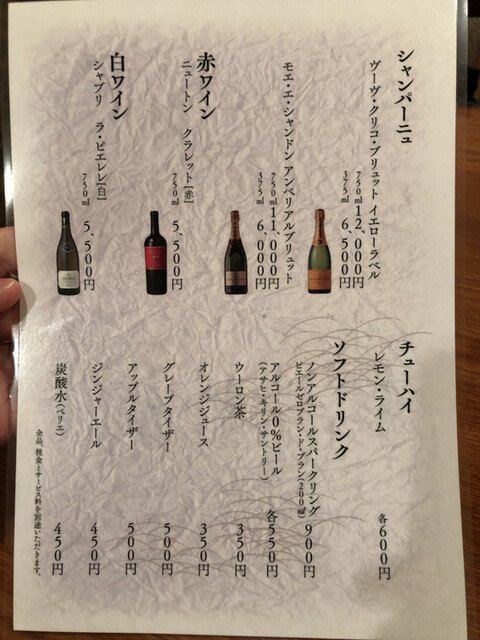 シャンパーニュ
ヴーヴ・クリコ・ブリュット イエローラベル
750ml 12、000円
375ml 6、500円
モエ・エ・シャンドン アンペリアルブリュット
750ml 11、000円
375ml 6、000円
赤ワイン
ニュートン クラレット[赤]
750ml 5、500円
白ワイン
シャブリ ラ・ピエレレ[白]
750ml 5、500円
チューハイ
レモン・ライム 各600円
ソフトドリンク
ノンアルコールスパークリング 900円
ピエールゼロブラン・ド・ブラン(200ml)
アルコール0%ビール 各550円
(アサヒ・キリン・サントリー)
ウーロン茶 350円
オレンジジュース 350円
グレープタイザー 500円
アップルタイザー 500円
ジンジャーエール 450円
炭酸水(ペリエ) 450円
全品、税金とサービス料を別途いただきます。